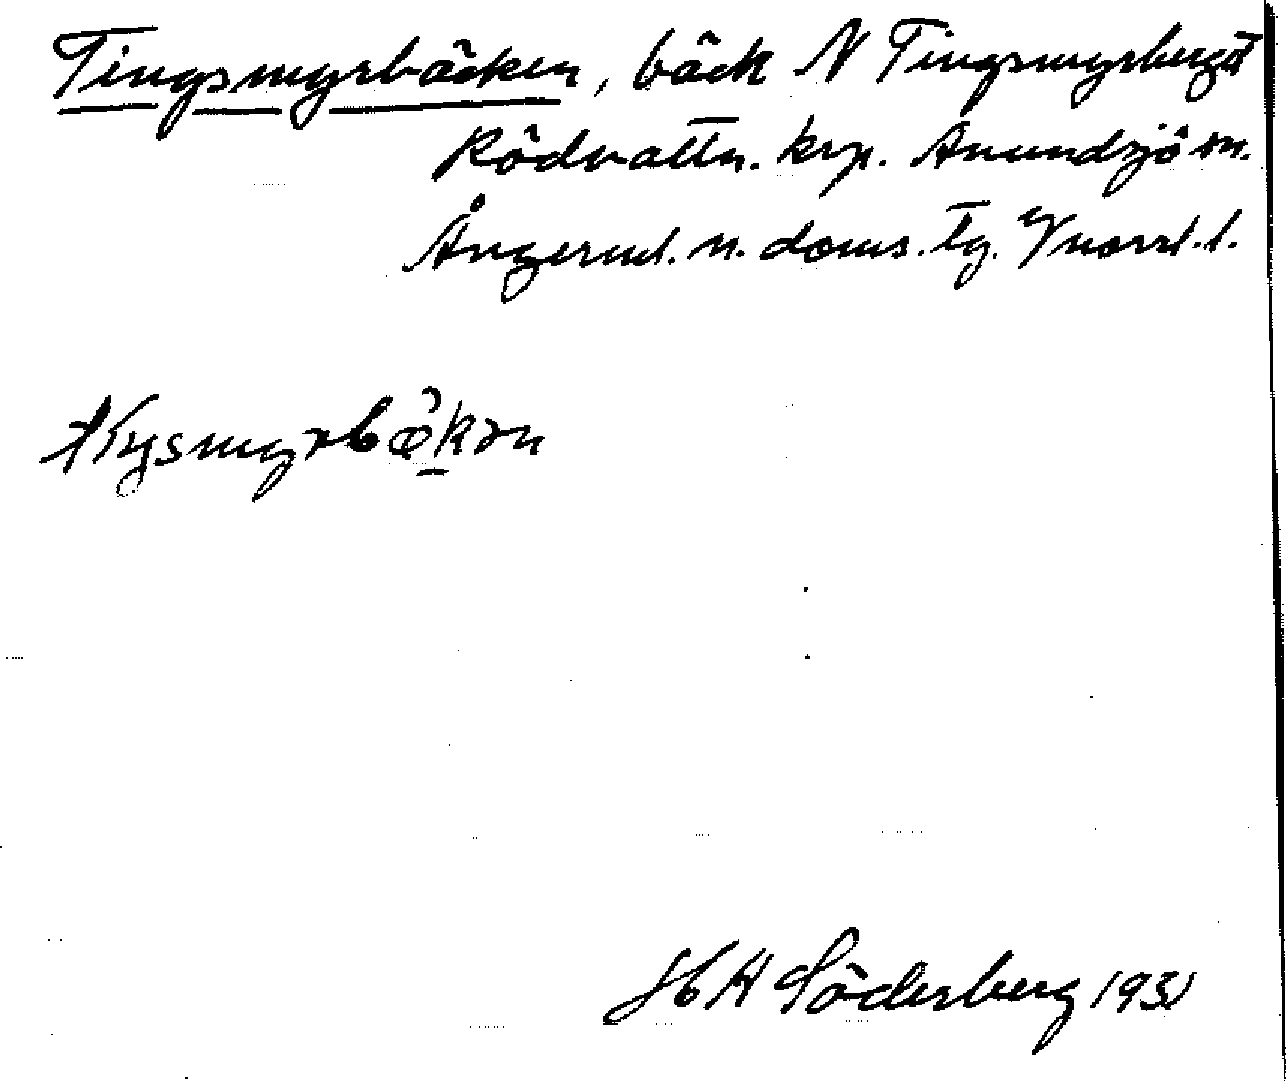 Tingsmyrbäcken, bäck N Tingsmyrberget
Rödvattn. krp. Anundsjö sn.
Ångerml. n. doms. tg. Vnorrl. l.
H H Söderberg 1931